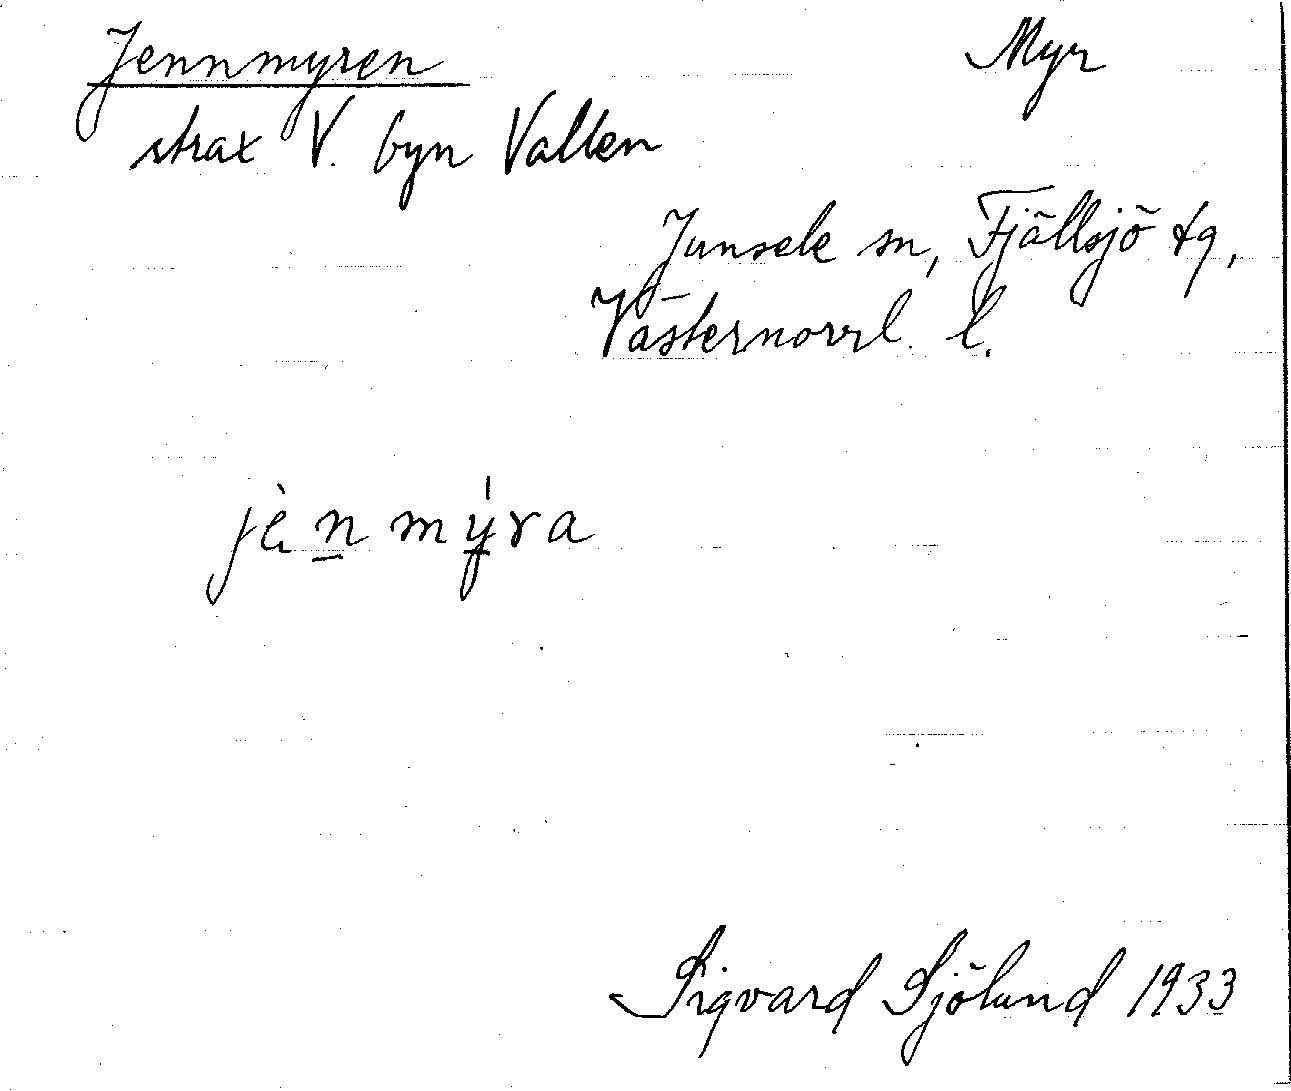 Jennmyren Myr
strax V. byn Vallen
Junsele sn, Fjällsjö tg,
Västernorrl. l.
jènmýra
Sigvard Sjölund 1933